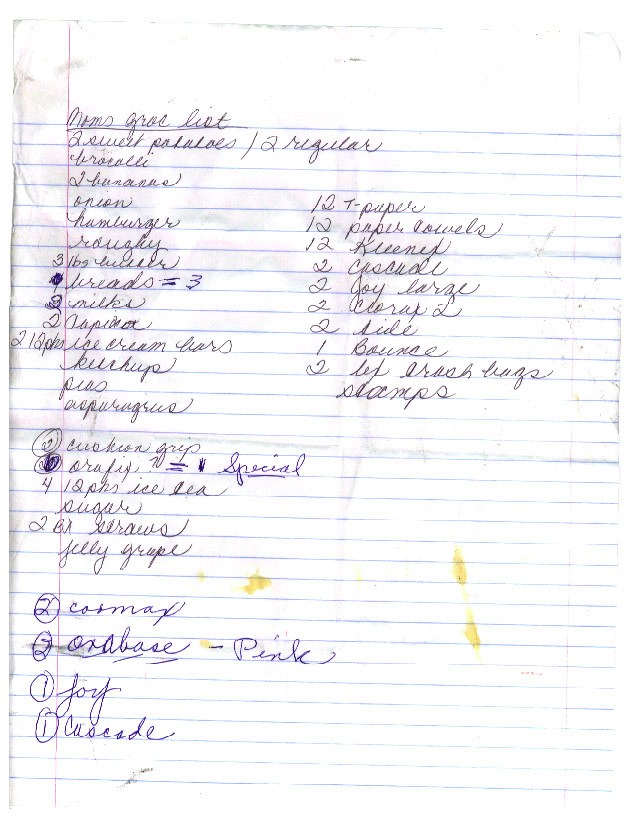 Moms groc list
2 sweet potatoes / 2 regular
brocolli
2 bananas
onion
hamburger
roughy
3 lbs butter
breads = 3
milks
2
2 12 pks ice cream bars
ketchup
peas
asparagus
12 T-paper
12 paper towels
12 Kleenex
2 Cascade
2 Joy large
2 Clorox 2
2 Tide
1 Bounce
2 bx trash bags
stamps
2 cushion grip
orafix = 1 Special
4 12 pks ice tea
sugar
2 bx straws
jelly grape
2
2 orabase - Pink
1 Joy
1 Cascade